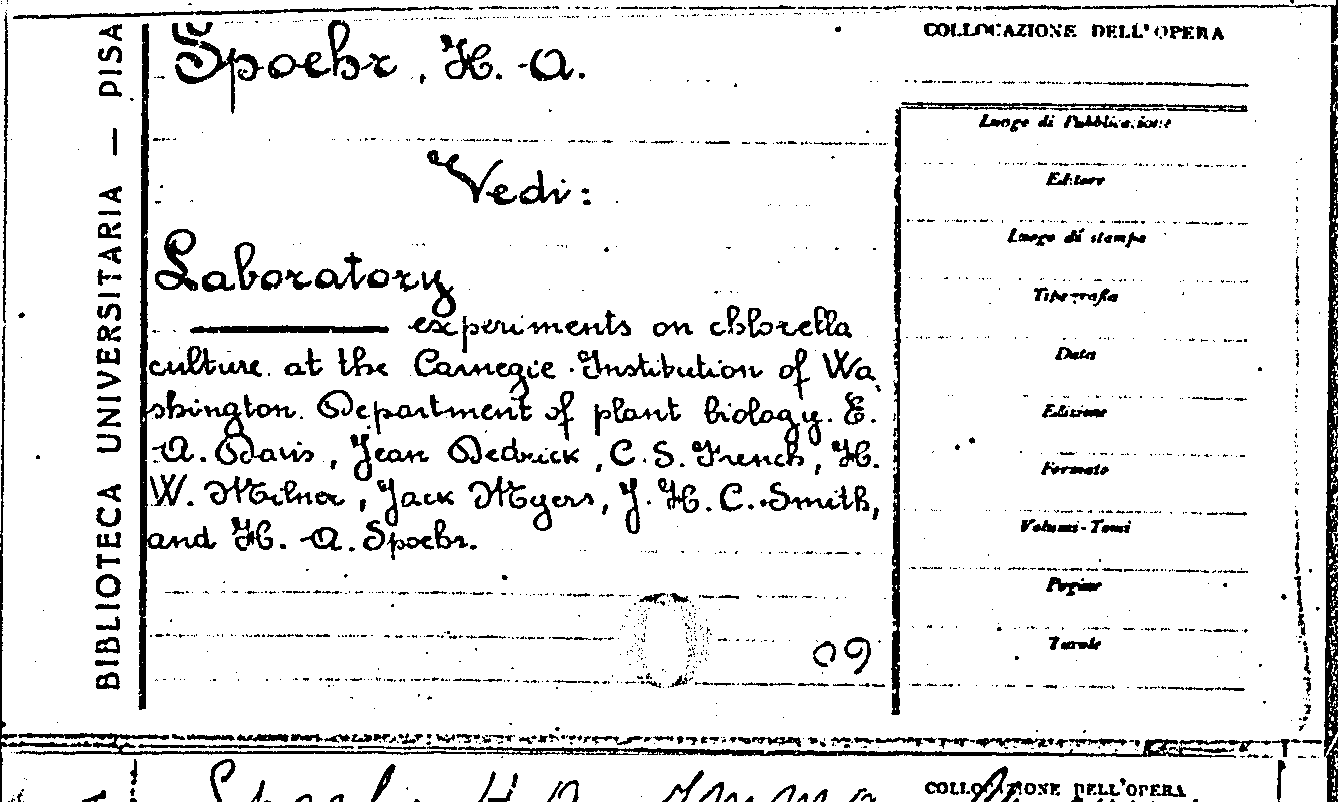 BIBLIOTECA UNIVERSITARIA — PISA
Spoehr, H. A.
Vedi:
Laboratory
experiments on chlorella
culture at the Carnegie Institution of Wa
shington. Department of plant biology. E.
A. Davis, Jean Dedrick, C. S. French, H.
W. Milner, Jack Myers, J. H. C. Smith,
and H. A. Spoehr.
09
COLLOCAZIONE DELL'OPERA
Luogo di Pubblicazione
Editore
Luogo di stampa
Tipografia
Data
Edizione
Formato
Volumi-Tomi
Pagine
Tavole
COLLOCAZIONE DELL'OPERA